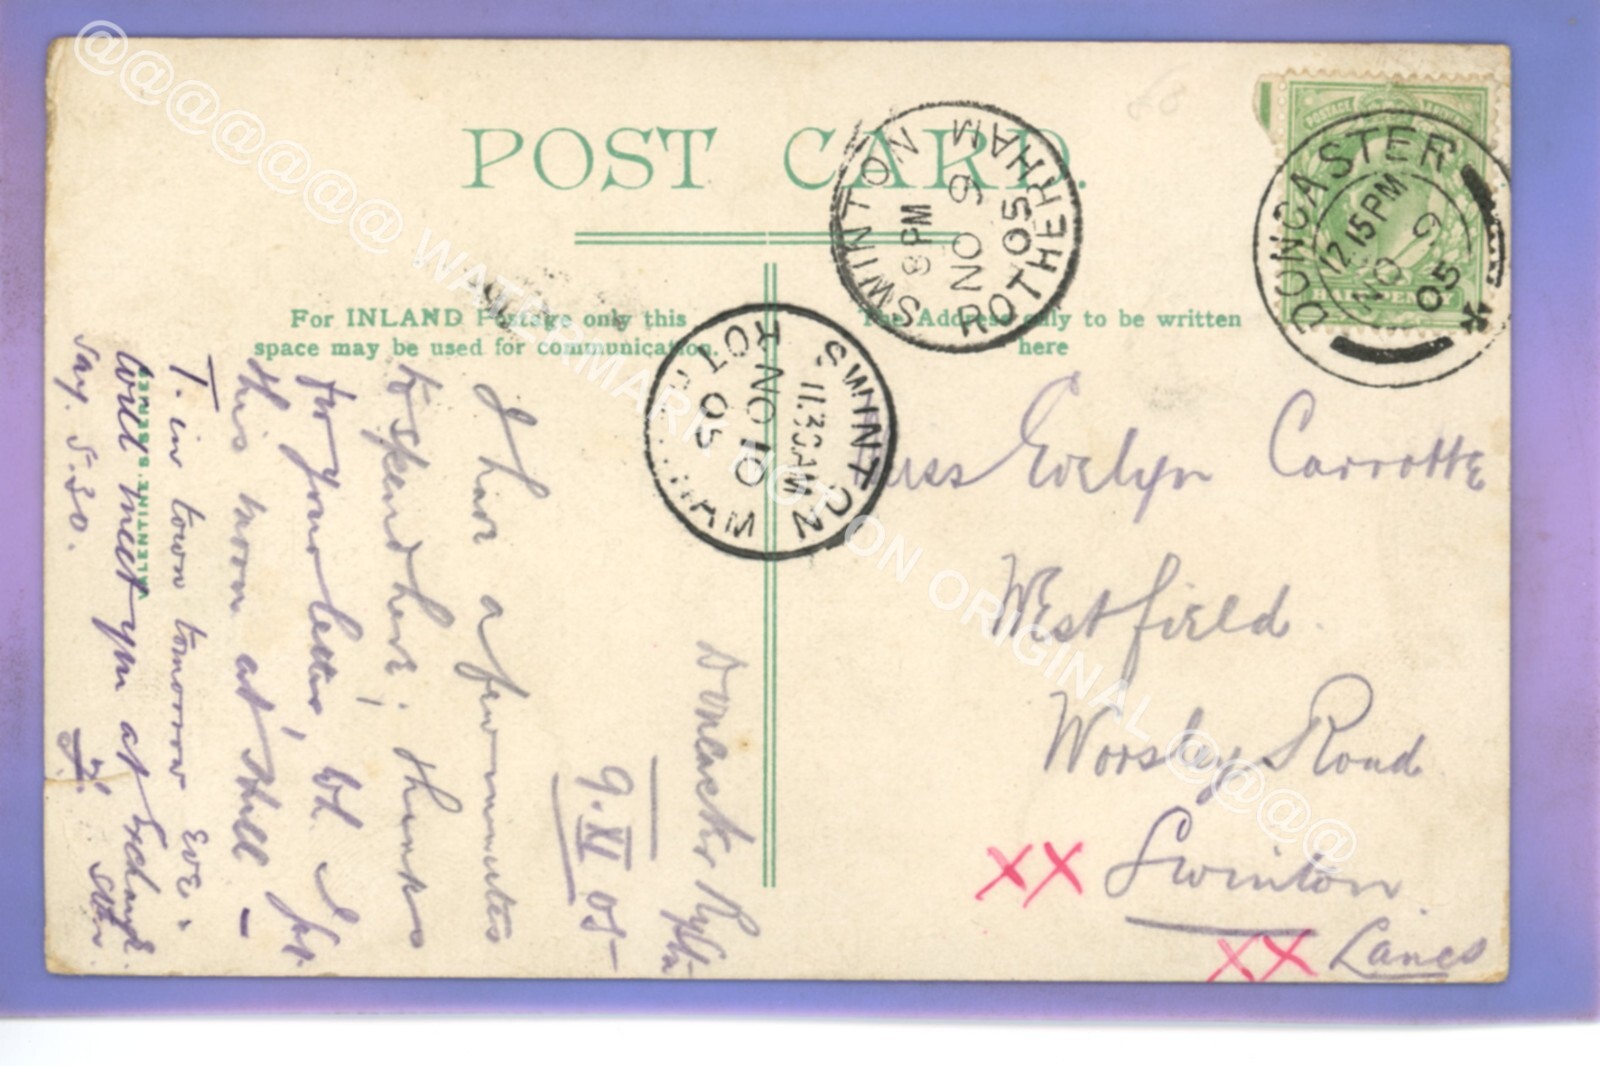 POST CARD.
For INLAND Postage only this
space may be used for communication.
The Address only to be written
here
VALENTINE'S SERIES
DONCASTER
12.15 PM
NO 9
05
HALFPENNY
SWINTON
8 PM
NO 9
05
ROTHERHAM
SWINTON
11.30 AM
NO 10
05
ROT HAM
Doncaster
9.XI 05
I have a few minutes
to spend here; thanks
for your letter, wh. I
this noon at Hull -
T. in town tomorrow eve.
Will meet you at Exchange
say. 5.30.
Miss Evelyn Carrotte
Westfield.
Worsley Road
XX Swinton.
XX Lancs
@@@@@@@@ WATERMARK NOT ON ORIGINAL @@@@